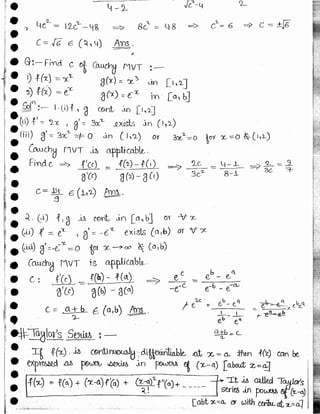 4-2 √c²-4 2
, 4c² = 12c² - 48 => 8c² = 48 => c² = 6 => c = ±√6
c = √6 ∈ (2,4) Ans.
Q:- Find c of Cauchy MVT :-
1) f(x) = x² g(x) = x³ in [1,2]
2) f(x) = eˣ g(x) = e⁻ˣ in [a,b]
Solⁿ:- 1.(i) f, g cont. in [1,2]
(ii) f' = 2x , g' = 3x² exists in (1,2)
(iii) g' = 3x² ≠ 0 in (1,2) or 3x² = 0 for x = 0 ∉ (1,2)
Cauchy MVT is applicable.
Find c => f'(c)/g'(c) = f(2)-f(1)/g(2)-g(1) => 2c/3c² = 4-1/8-1 => 2/3c = 3/7
c = 14/9 ∈ (1,2) Ans.
2. (i) f, g is cont. in [a,b] or ∀ x
(ii) f' = eˣ , g' = -e⁻ˣ exists (a,b) or ∀ x
(iii) g' = -e⁻ˣ = 0 for x → ∞ ∉ (a,b)
Cauchy MVT is applicable.
c : f'(c)/g'(c) = f(b) - f(a)/g(b) - g(a) => eᶜ/-e⁻ᶜ = eᵇ - eᵃ/e⁻ᵇ - e⁻ᵃ
c = a+b/2 ∈ (a,b) Ans.
a+b = c
# Taylor's Series :-
If f(x) is continuously differentiable at x = a then f(x) can be
expressed as power series in powers of (x-a) [about x=a]
f(x) = f(a) + (x-a) f'(a) + (x-a)²/2! f''(a) + ---- → It is called Taylor's
series in powers of (x-a)
[abt x=a or with centre at x=a]